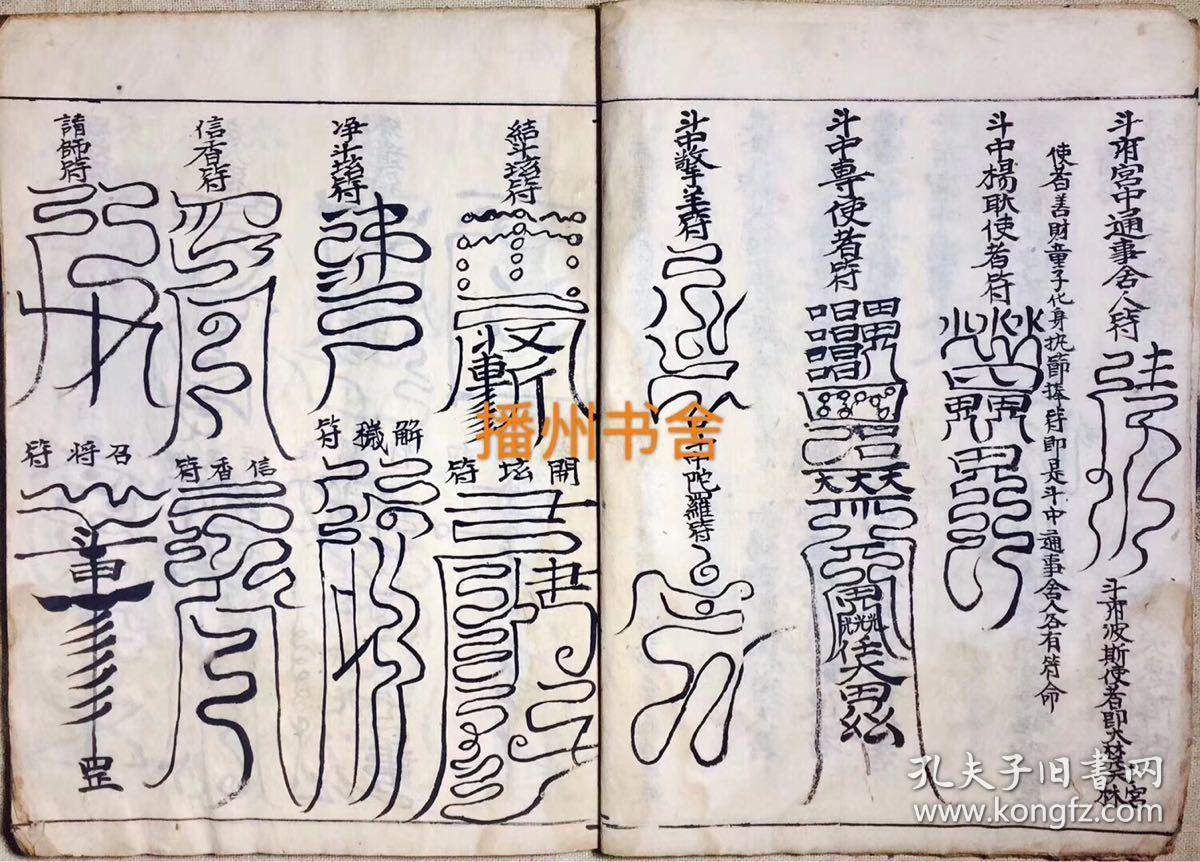 斗府宮中通事舍人符
使者善財童子化身执節捧符即是斗中通事舍人各有符命
斗府波斯使者即大梵天林宮
斗中楊耿使者符
斗中專使者符
斗中擎羊符
斗中陀羅符
結斗壇符
開壇符
净斗壇符
解穢符
信香符
信香符
請師符
召将符
罡
播州书舍
孔夫子旧书网
www.kongfz.com